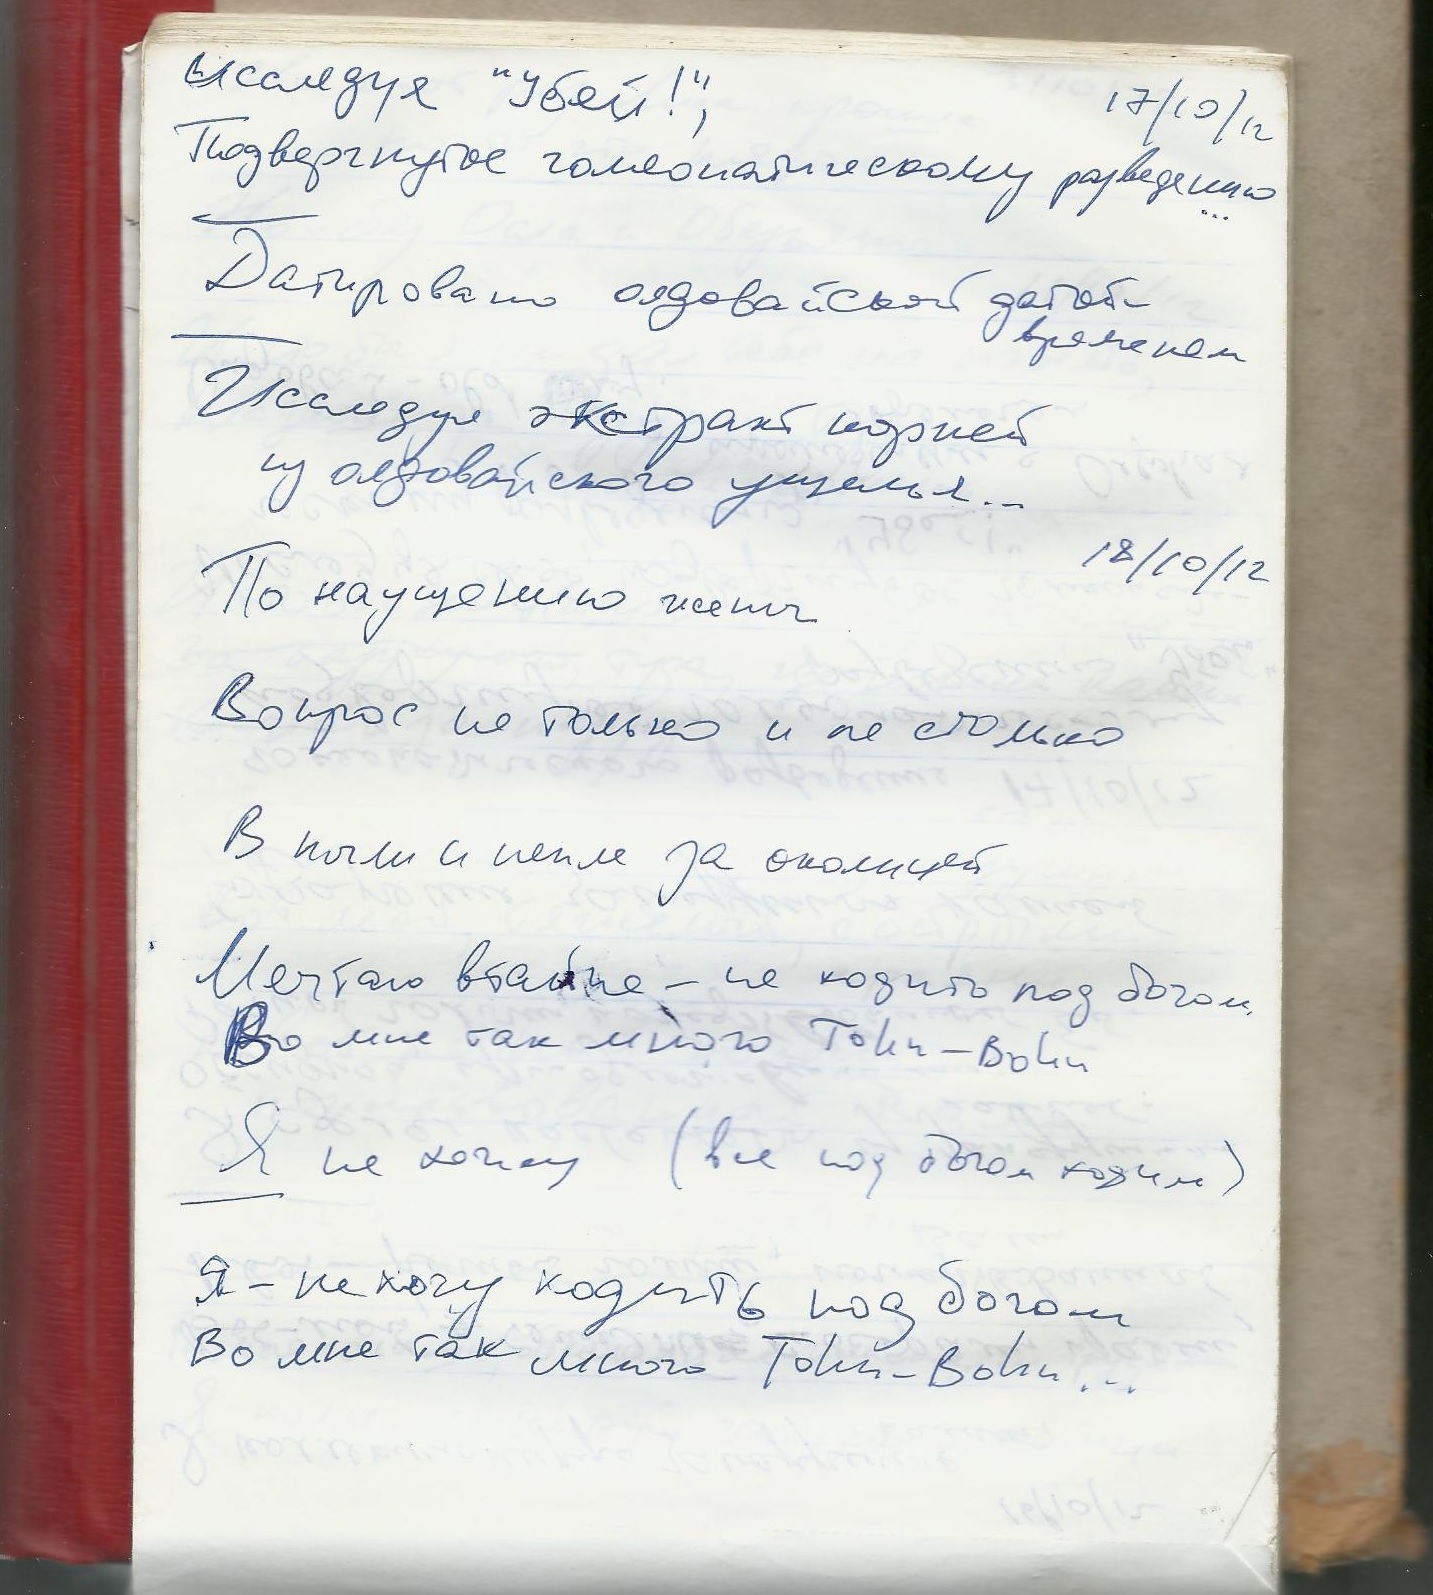 Исследуя "Убей!",
17/10/12
Подвергнутое гомеопатическому разведению
...
Датировано олдовайской датой-
временем
Исследуя экстракт корней
из олдовайского ущелья...
18/10/12
По наущению
Вопрос не только и не столько
В пыли и пепле за околицей
Мечтаю втайне – не ходить под богом,
Во мне так много Tohu-Bohu
Я не хочу (все под богом ходим)
Я – не хочу ходить под богом
Во мне так много Tohu-Bohu...